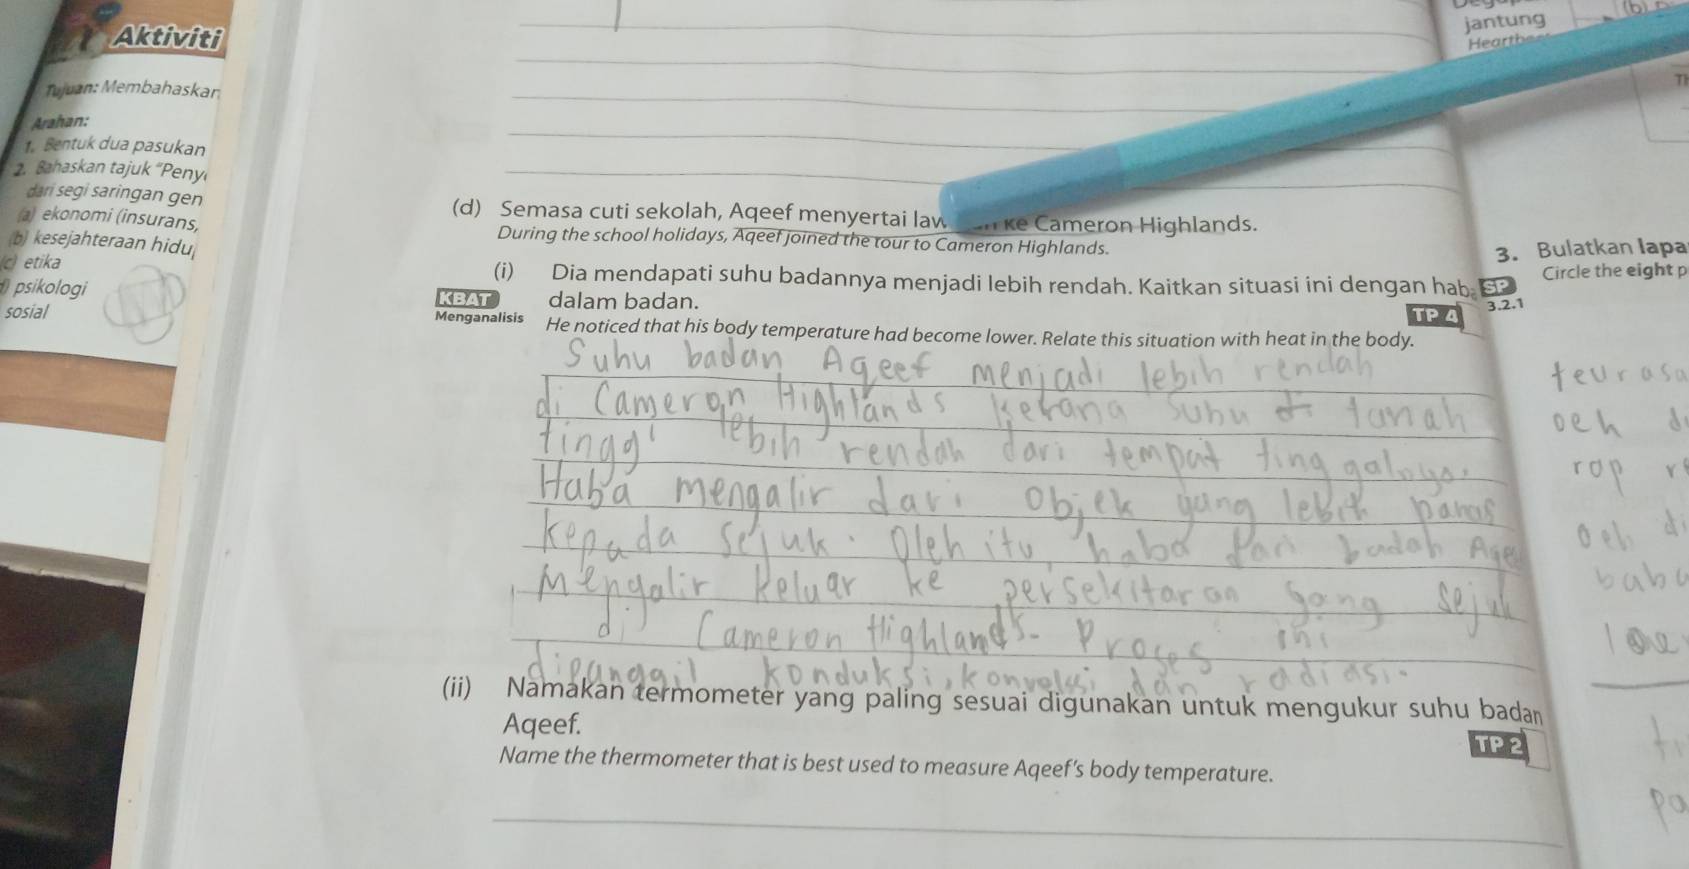 Aktiviti
Tujuan: Membahaskan
Arahan:
1. Bentuk dua pasukan
2. Bahaskan tajuk "Peny
dari segi saringan gen
(a) ekonomi (insurans,
(b) kesejahteraan hidu
(c) etika
psikologi
sosial
jantung
(b)
(d) Semasa cuti sekolah, Aqeef menyertai law ke Cameron Highlands.
During the school holidays, Aqeef joined the tour to Cameron Highlands.
(i) Dia mendapati suhu badannya menjadi lebih rendah. Kaitkan situasi ini dengan haba
KBAT dalam badan.
SP 3.2.1
TP 4
Menganalisis He noticed that his body temperature had become lower. Relate this situation with heat in the body.
Suhu badan Aqeef menjadi lebih rendah
di Cameron Highlands kerana suhu di tanah
tinggi lebih rendah dari tempat tinggalnya.
Haba mengalir dari objek yang lebih panas
kepada sejuk. Oleh itu, haba dari badah Aqee
mengalir keluar ke persekitaran yang sejuk
di Cameron Highlands. Proses ini
dipanggil konduksi, konveksi dan radiasi.
(ii) Namakan termometer yang paling sesuai digunakan untuk mengukur suhu badan
Aqeef.
TP 2
Name the thermometer that is best used to measure Aqeef's body temperature.
3. Bulatkan lapa
Circle the eight p